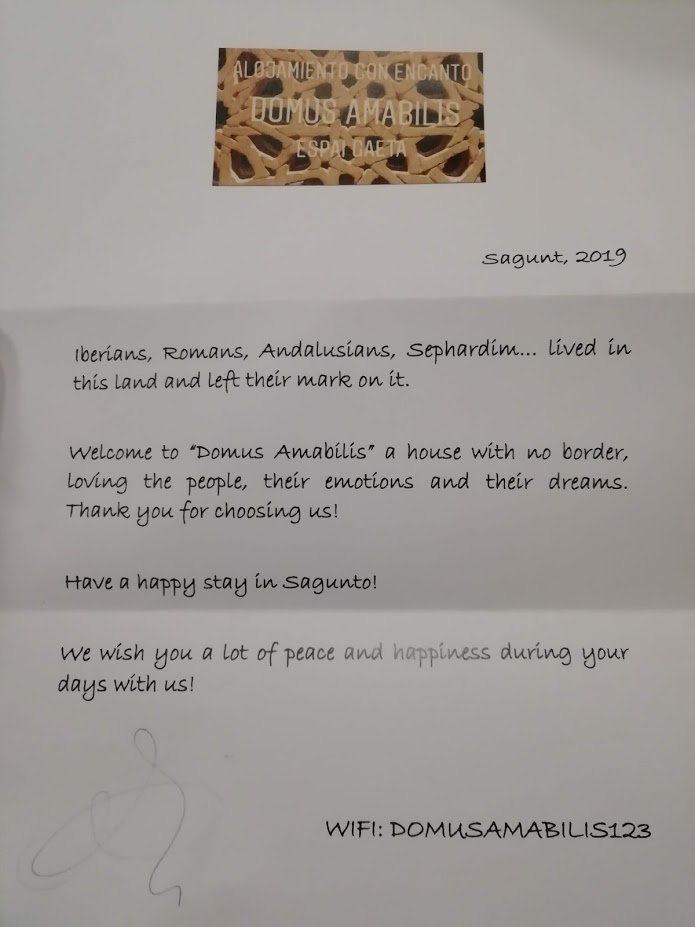 ALOJAMIENTO CON ENCANTO
DOMUS AMABILIS
ESPAI GAETA
Sagunt, 2019
Iberians, Romans, Andalusians, Sephardim... lived in
this land and left their mark on it.
Welcome to "Domus Amabilis" a house with no border,
loving the people, their emotions and their dreams.
Thank you for choosing us!
Have a happy stay in Sagunto!
We wish you a lot of peace and happiness during your
days with us!
WIFI: DOMUSAMABILIS123